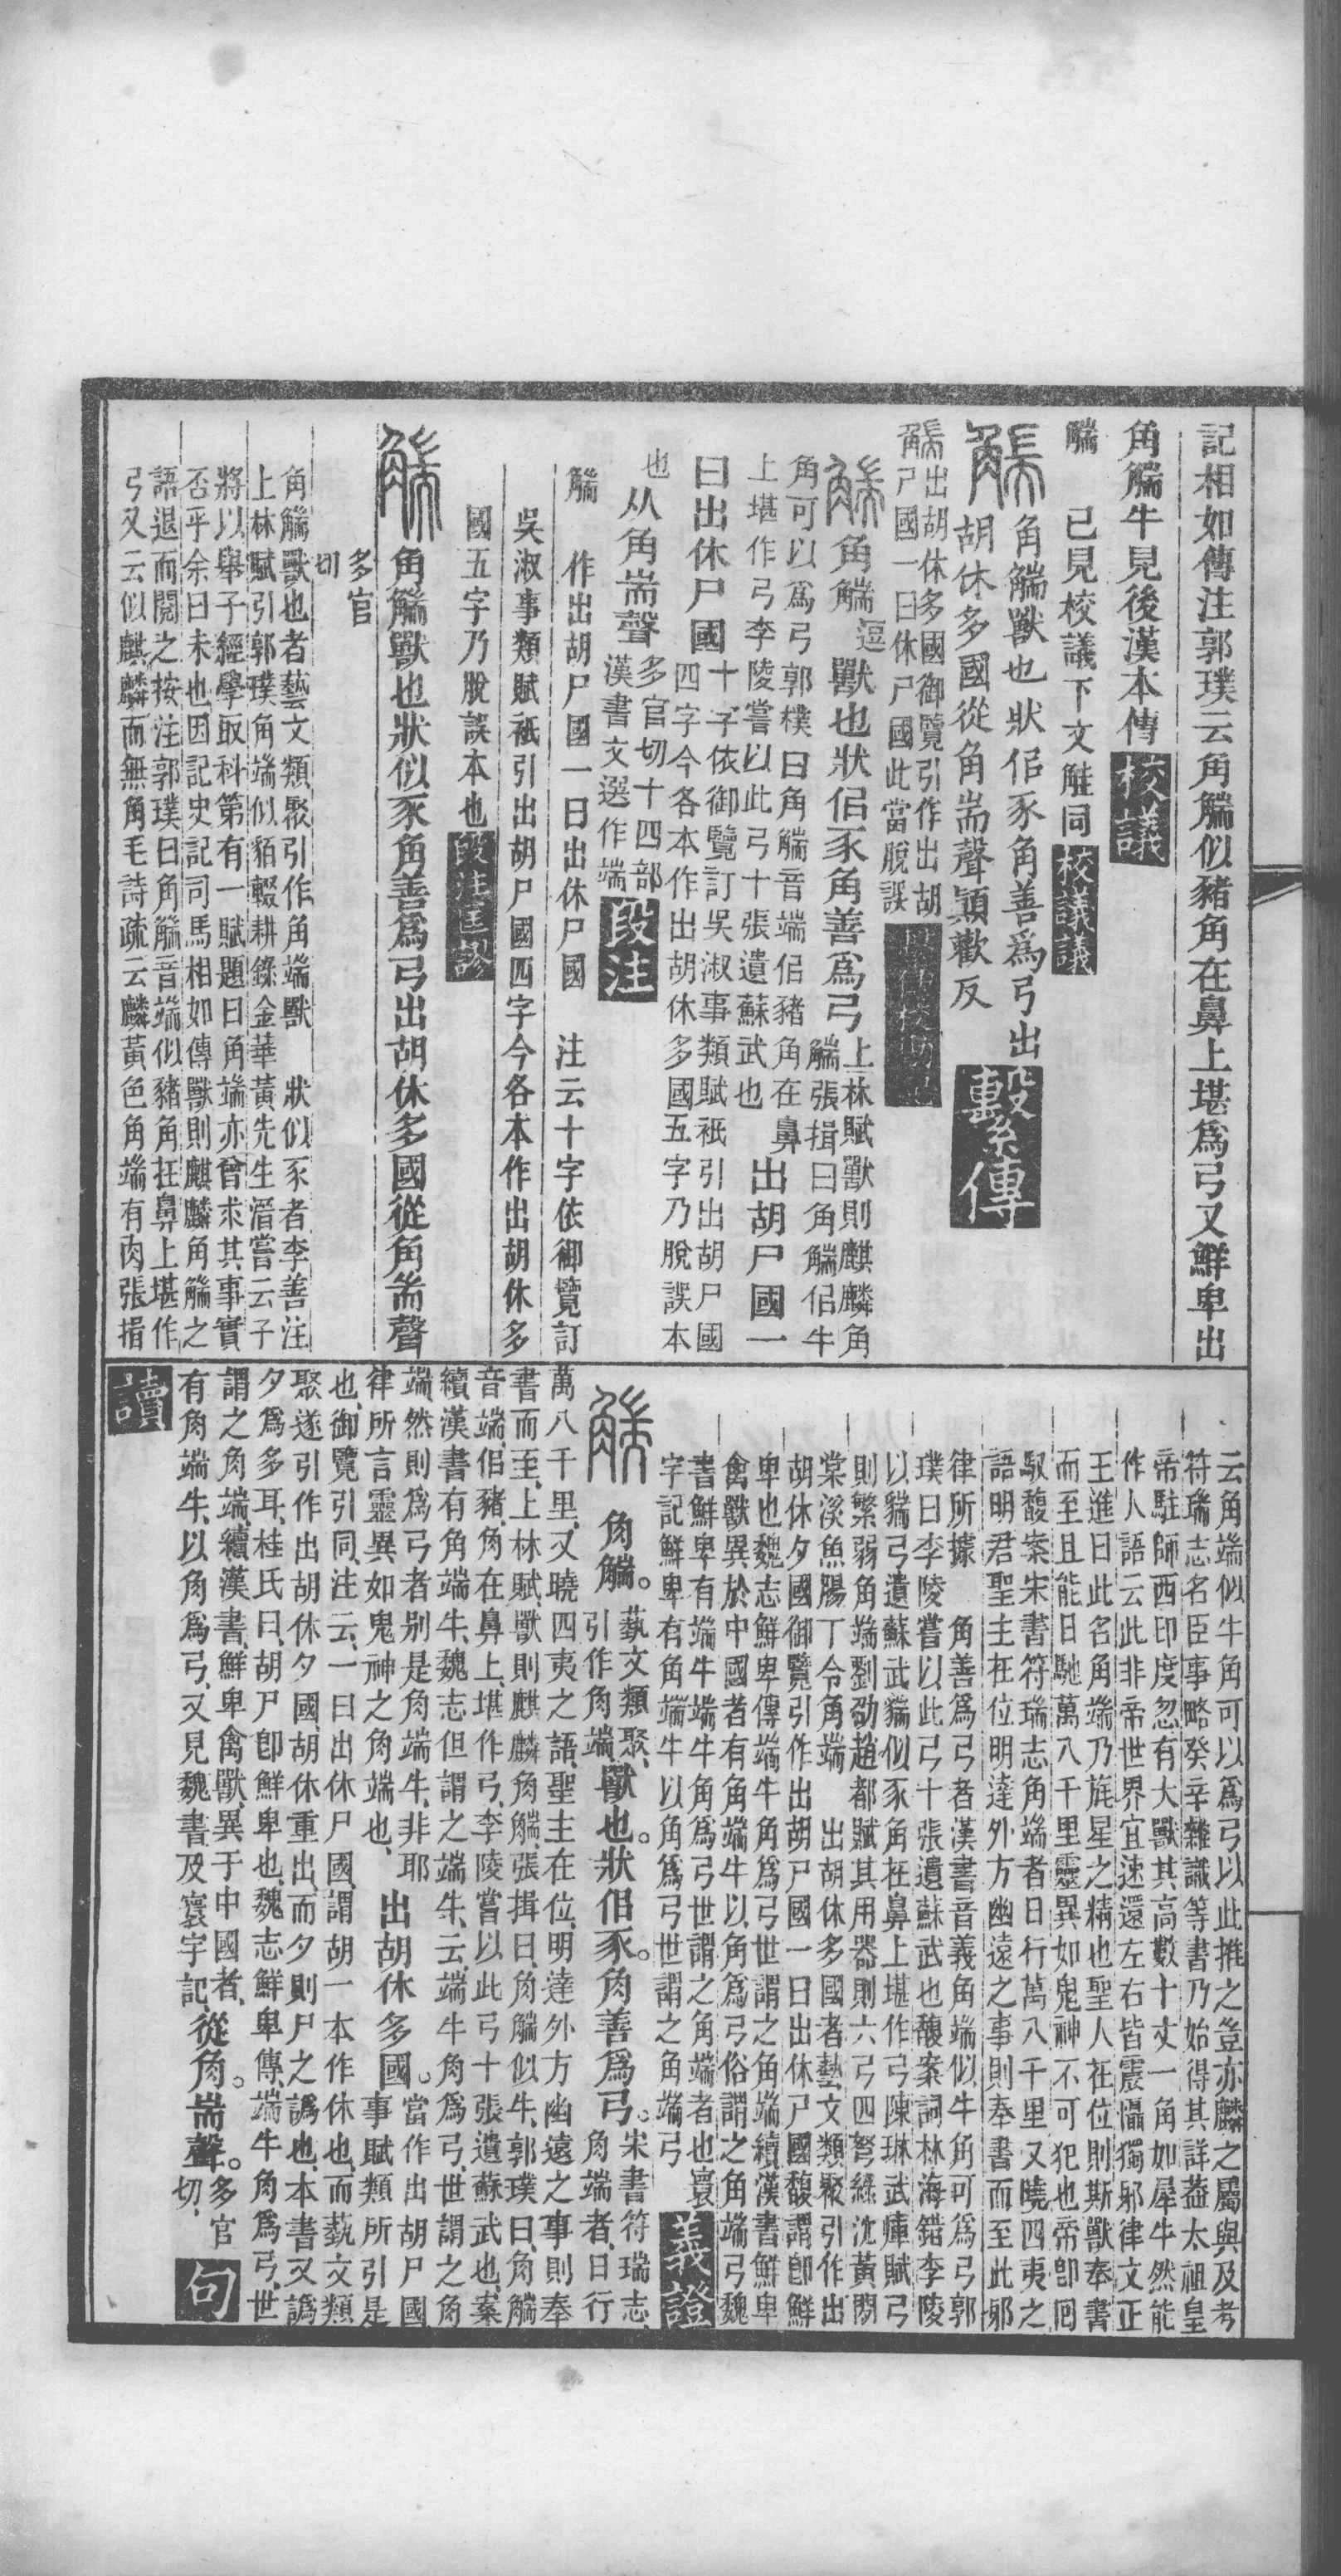 記相如傳注郭璞云角䚡似豬角在鼻上堪爲弓又鮮卑出
角䚡牛見後漢本傳 校議
䚡 已見校議下文觟同 校議議
角䚡獸也狀佀豕角善爲弓出
胡休多國從角耑聲顛歡反 繫傳
出胡休多國御覽引作出胡
尸國一曰休尸國此當脫誤
角䚡逗獸也狀佀豕角善爲弓上林賦獸則麒麟角
䚡張揖曰角䚡佀牛
角可以爲弓郭樸曰角䚡音端佀豬角在鼻
上堪作弓李陵嘗以此弓十張遺蘇武也
出胡尸國一
曰出休尸國十字依御覽訂吳淑事類賦衹引出胡尸國
四字今各本作出胡休多國五字乃脫誤本
也从角耑聲多官切十四部
漢書文選作端 段注
䚡 作出胡尸國一曰出休尸國 注云十字依御覽訂
吳淑事類賦衹引出胡尸國四字今各本作出胡休多
國五字乃脫誤本也 段注匡謬
角䚡獸也狀似豕角善爲弓出胡休多國從角耑聲
多官
切
角䚡獸也者藝文類聚引作角端獸 狀似豕者李善注
上林賦引郭璞角端似貊輟耕錄金華黃先生溍嘗云子
將以舉子經學取科第有一賦題曰角端亦曾求其事實
否乎余曰未也因記史記司馬相如傳獸則麒麟角䚡之
語退而閱之按注郭璞曰角䚡音端似豬角在鼻上堪作
弓又云似麒麟而無角毛詩疏云麟黃色角端有肉張揖
云角端似牛角可以爲弓以此推之豈亦麟之屬與及考
符瑞志名臣事略癸辛雜識等書乃始得其詳葢太祖皇
帝駐師西印度忽有大獸其高數十丈一角如犀牛然能
作人語云此非帝世界宜速還左右皆震懾獨邪律文正
王進曰此名角端乃旄星之精也聖人在位則斯獸奉書
而至且能日馳萬八千里靈異如鬼神不可犯也帝卽囘
馭馥案宋書符瑞志角端者日行萬八千里又曉四夷之
語明君聖主在位明達外方幽遠之事則奉書而至此邪
律所據 角善爲弓者漢書音義角端似牛角可爲弓郭
璞曰李陵嘗以此弓十張遺蘇武也馥案詞林海錯李陵
以貓弓遺蘇武貓似豕角在鼻上堪作弓陳琳武庫賦弓
則繁弱角端劉劭趙都賦其用器則六弓四弩綠沈黃閒
棠溪魚腸丁令角端 出胡休多國者藝文類聚引作出
胡休夕國御覽引作出胡尸國一曰出休尸國馥謂卽鮮
卑也魏志鮮卑傳端牛角爲弓世謂之角端續漢書鮮卑
禽獸異於中國者有角端牛以角爲弓俗謂之角端弓魏
書鮮卑有端牛端牛角爲弓世謂之角端者也寰
字記鮮卑有角端牛以角爲弓世謂之角端弓 義證
角䚡。藝文類聚、
引作角端、獸也。狀佀豕。角善爲弓。宋書符瑞志、
角端者、日行
萬八千里、又曉四夷之語、聖主在位、明達外方幽遠之事、則奉
書而至、上林賦、獸則麒麟、角䚡、張揖曰、角䚡似牛、郭璞曰、角䚡
音端、佀豬、角在鼻上、堪作弓、李陵嘗以此弓十張遺蘇武也、案
續漢書有角端牛、魏志但謂之端牛、云、端牛角爲弓、世謂之角
端、然則爲弓者、別是角端牛、非耶
律所言靈異如鬼神之角端也、出胡休多國。當作出胡尸國
事賦類所引是
也、御覽引同、注云、一曰出休尸國、謂胡一本作休也、而藝文類
聚遂引作出胡休夕國、胡休重出、而夕則尸之譌也、本書又譌
夕爲多耳、桂氏曰、胡尸卽鮮卑也、魏志鮮卑傳、端牛角爲弓、世
謂之角端、續漢書、鮮卑禽獸、異于中國者、
有角端牛、以角爲弓、又見魏書及寰宇記、從角。耑聲。多官
切、 句
讀